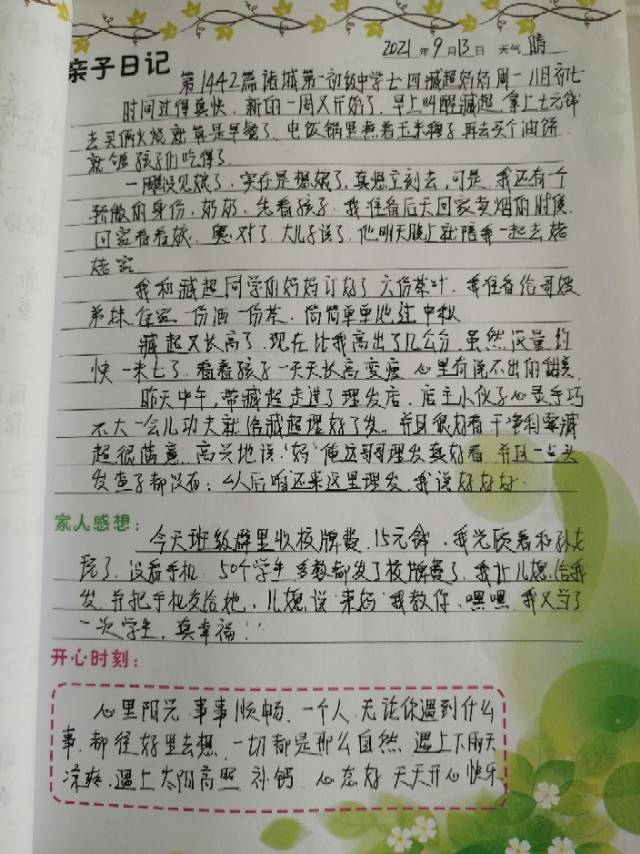 2021年9月13日 天气 晴
亲子日记
第1442篇诸城第一初级中学七四臧超妈妈周一八月初七
时间过得真快.新的一周又开始了.早上叫醒臧超.拿上七元钱
去买俩火烧就算是早餐了.电饭锅里煮着玉米糁子再去买个油饼
就够孩子们吃得了.
一周没见娘了.实在是想娘了.真想立刻去,可是.我还有一个
骄傲的身份.奶奶.先看孩子.我准备后天回家卖烟的时候.
回家看看娘.奥.对了.大儿子说了.他明天晚上就陪我一起去姥
姥家.
我和臧超同学的妈妈订好了六份茶叶.我准备给哥嫂
弟妹.每家一份酒一份茶.简简单单地过中秋.
臧超又长高了.现在比我高出了几公分.虽然没量.约
快一米七了.看着孩子一天天长高变瘦.心里有说不出的甜美.
昨天中午,带臧超走进了理发店.店主小伙子心灵手巧
不大一会儿功夫就给臧超理好了发.并且很好看干净利索臧
超很满意.高兴地说"妈"俺这哥哥理发真好看.并且一点头
发茬子都没有;以后咱还来这里理发.我说好好好.
家人感想:
今天班级群里收校牌费.15元钱.我光顾着和孙女
玩了.没看手机.50个学生多数都发了校牌费了.我让儿媳给我
发.并把手机交给她.儿媳说"来妈"我教你.嘿嘿.我又当了
一次学生.真幸福!!
开心时刻:
心里阳光.事事顺畅.一个人.无论你遇到什么
事.都往好里去想.一切都是那么自然.遇上下雨天
凉爽.遇上太阳高照.补钙.心态好.天天开心快乐.